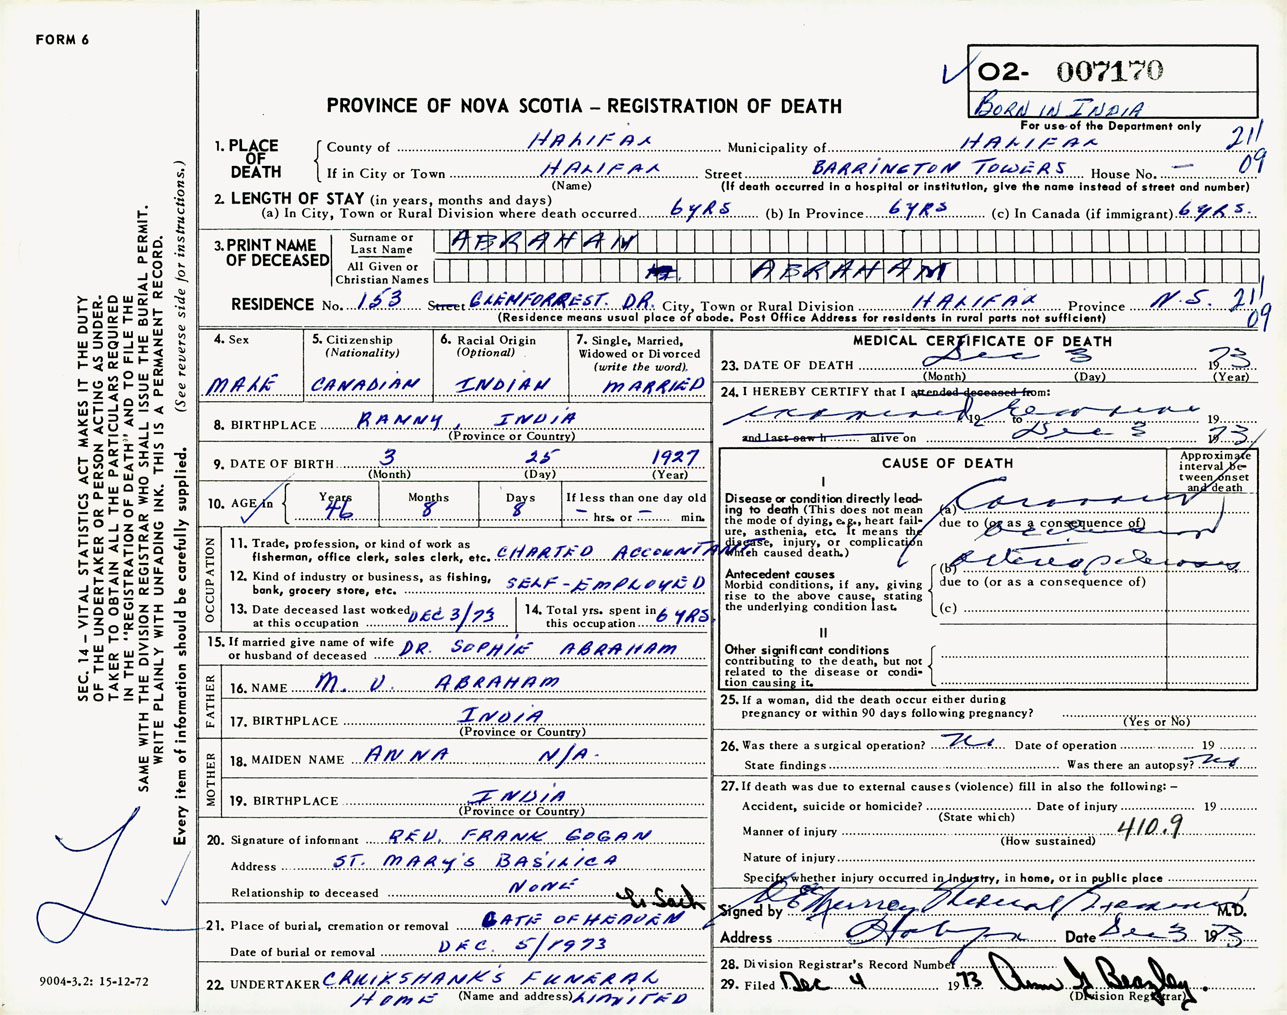 FORM 6
O2- 007170
BORN IN INDIA
For use of the Department only
PROVINCE OF NOVA SCOTIA – REGISTRATION OF DEATH
1. PLACE OF DEATH
County of HALIFAX Municipality of HALIFAX 211
If in City or Town HALIFAX Street BARRINGTON TOWERS House No. — 09
(Name) (If death occurred in a hospital or institution, give the name instead of street and number)
2. LENGTH OF STAY (in years, months and days)
(a) In City, Town or Rural Division where death occurred 6 YRS (b) In Province 6 YRS (c) In Canada (if immigrant) 6 YRS.
3. PRINT NAME OF DECEASED
Surname or Last Name ABRAHAM
All Given or Christian Names ABRAHAM
RESIDENCE No. 153 Street GLENFORREST. DR. City, Town or Rural Division HALIFAX Province N.S. 211
09
(Residence means usual place of abode. Post Office Address for residents in rural parts not sufficient)
4. Sex
MALE
5. Citizenship (Nationality)
CANADIAN
6. Racial Origin (Optional)
INDIAN
7. Single, Married, Widowed or Divorced (write the word).
MARRIED
8. BIRTHPLACE RANNY, INDIA
(Province or Country)
9. DATE OF BIRTH 3 25 1927
(Month) (Day) (Year)
10. AGE in
Years Months Days If less than one day old
46 8 8 — hrs. or — min.
OCCUPATION
11. Trade, profession, or kind of work as fisherman, office clerk, sales clerk, etc. CHARTED ACCOUNTANT
12. Kind of industry or business, as fishing, bank, grocery store, etc. SELF-EMPLOYED
13. Date deceased last worked at this occupation DEC 3/73
14. Total yrs. spent in this occupation 6 YRS.
15. If married give name of wife or husband of deceased DR. SOPHIE ABRAHAM
FATHER
16. NAME M. V. ABRAHAM
17. BIRTHPLACE INDIA
(Province or Country)
MOTHER
18. MAIDEN NAME ANNA N/A.
19. BIRTHPLACE INDIA
(Province or Country)
20. Signature of informant REV. FRANK GOGAN
Address ST. MARY'S BASILICA
Relationship to deceased NONE
21. Place of burial, cremation or removal GATE OF HEAVEN
Date of burial or removal DEC. 5/1973
22. UNDERTAKER CRUIKSHANK'S FUNERAL
HOME (Name and address) LIMITED
MEDICAL CERTIFICATE OF DEATH
23. DATE OF DEATH Dec 3 1973
(Month) (Day) (Year)
24. I HEREBY CERTIFY that I attended deceased from:
examined 19 to 19
and last saw h alive on Dec 3 1973
CAUSE OF DEATH
Approximate interval between onset and death
I
Disease or condition directly leading to death (This does not mean the mode of dying, e.g., heart failure, asthenia, etc. It means the disease, injury, or complication which caused death.)
(a) Coronary
due to (or as a consequence of)
occlusion
Antecedent causes
Morbid conditions, if any, giving rise to the above cause, stating the underlying condition last.
(b) arteriosclerosis
due to (or as a consequence of)
(c)
II
Other significant conditions contributing to the death, but not related to the disease or condition causing it.
25. If a woman, did the death occur either during pregnancy or within 90 days following pregnancy?
(Yes or No)
26. Was there a surgical operation? No Date of operation 19
State findings Was there an autopsy? No
27. If death was due to external causes (violence) fill in also the following: –
Accident, suicide or homicide? Date of injury 19
(State which)
Manner of injury 410.9
(How sustained)
Nature of injury
Specify whether injury occurred in industry, in home, or in public place
Signed by Murray Medical Examiner M.D.
Address Halifax Date Dec 3 1973
28. Division Registrar's Record Number
29. Filed Dec 4 1973
(Division Registrar)
SEC. 14 – VITAL STATISTICS ACT MAKES IT THE DUTY
OF THE UNDERTAKER OR PERSON ACTING AS UNDER-
TAKER TO OBTAIN ALL THE PARTICULARS REQUIRED
IN THE "REGISTRATION OF DEATH" AND TO FILE THE
SAME WITH THE DIVISION REGISTRAR WHO SHALL ISSUE THE BURIAL PERMIT.
WRITE PLAINLY WITH UNFADING INK. THIS IS A PERMANENT RECORD.
Every item of information should be carefully supplied. (See reverse side for instructions.)
9004-3.2: 15-12-72